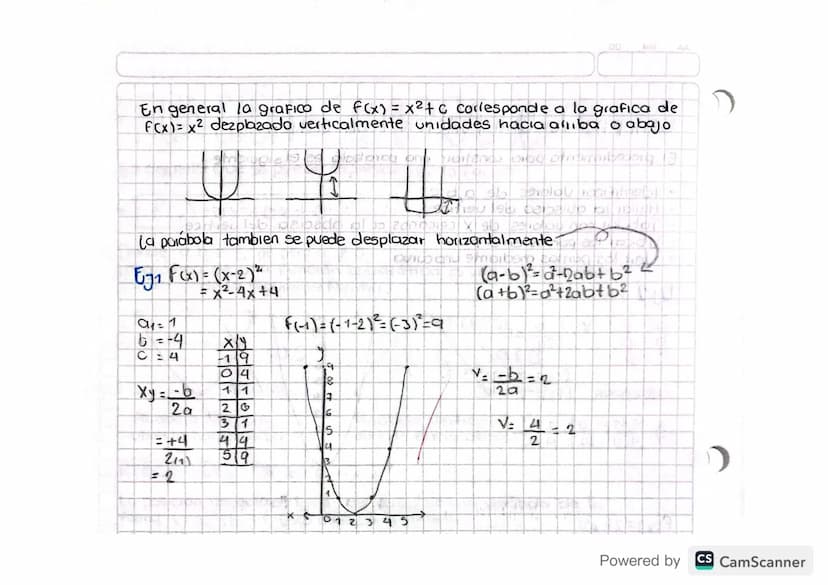 En general la grafico de f(x) = x²+c corresponde a la grafica de
f(x)= x² dezplazado verticalmente unidades hacia arriba o abajo
La parábola tambien se puede desplazar horizontalmente
Ej1 f(x) = (x-2)²
= x²-4x+4
(a-b)²= a²-2ab+b²
(a+b)²= a²+2ab+b²
a = 1
b = -4
c = 4
f(-1)=(-1-2)²=(-3)²=9
x y
-1 9
0 4
1 1
2 0
3 1
4 4
5 9
Xy = -b
2a
= +4
2(1)
= 2
y
9
8
7
6
5
4
3
2
1
x 0 1 2 3 4 5
V= -b = 2
2a
V= 4 = 2
2
Powered by CS CamScanner